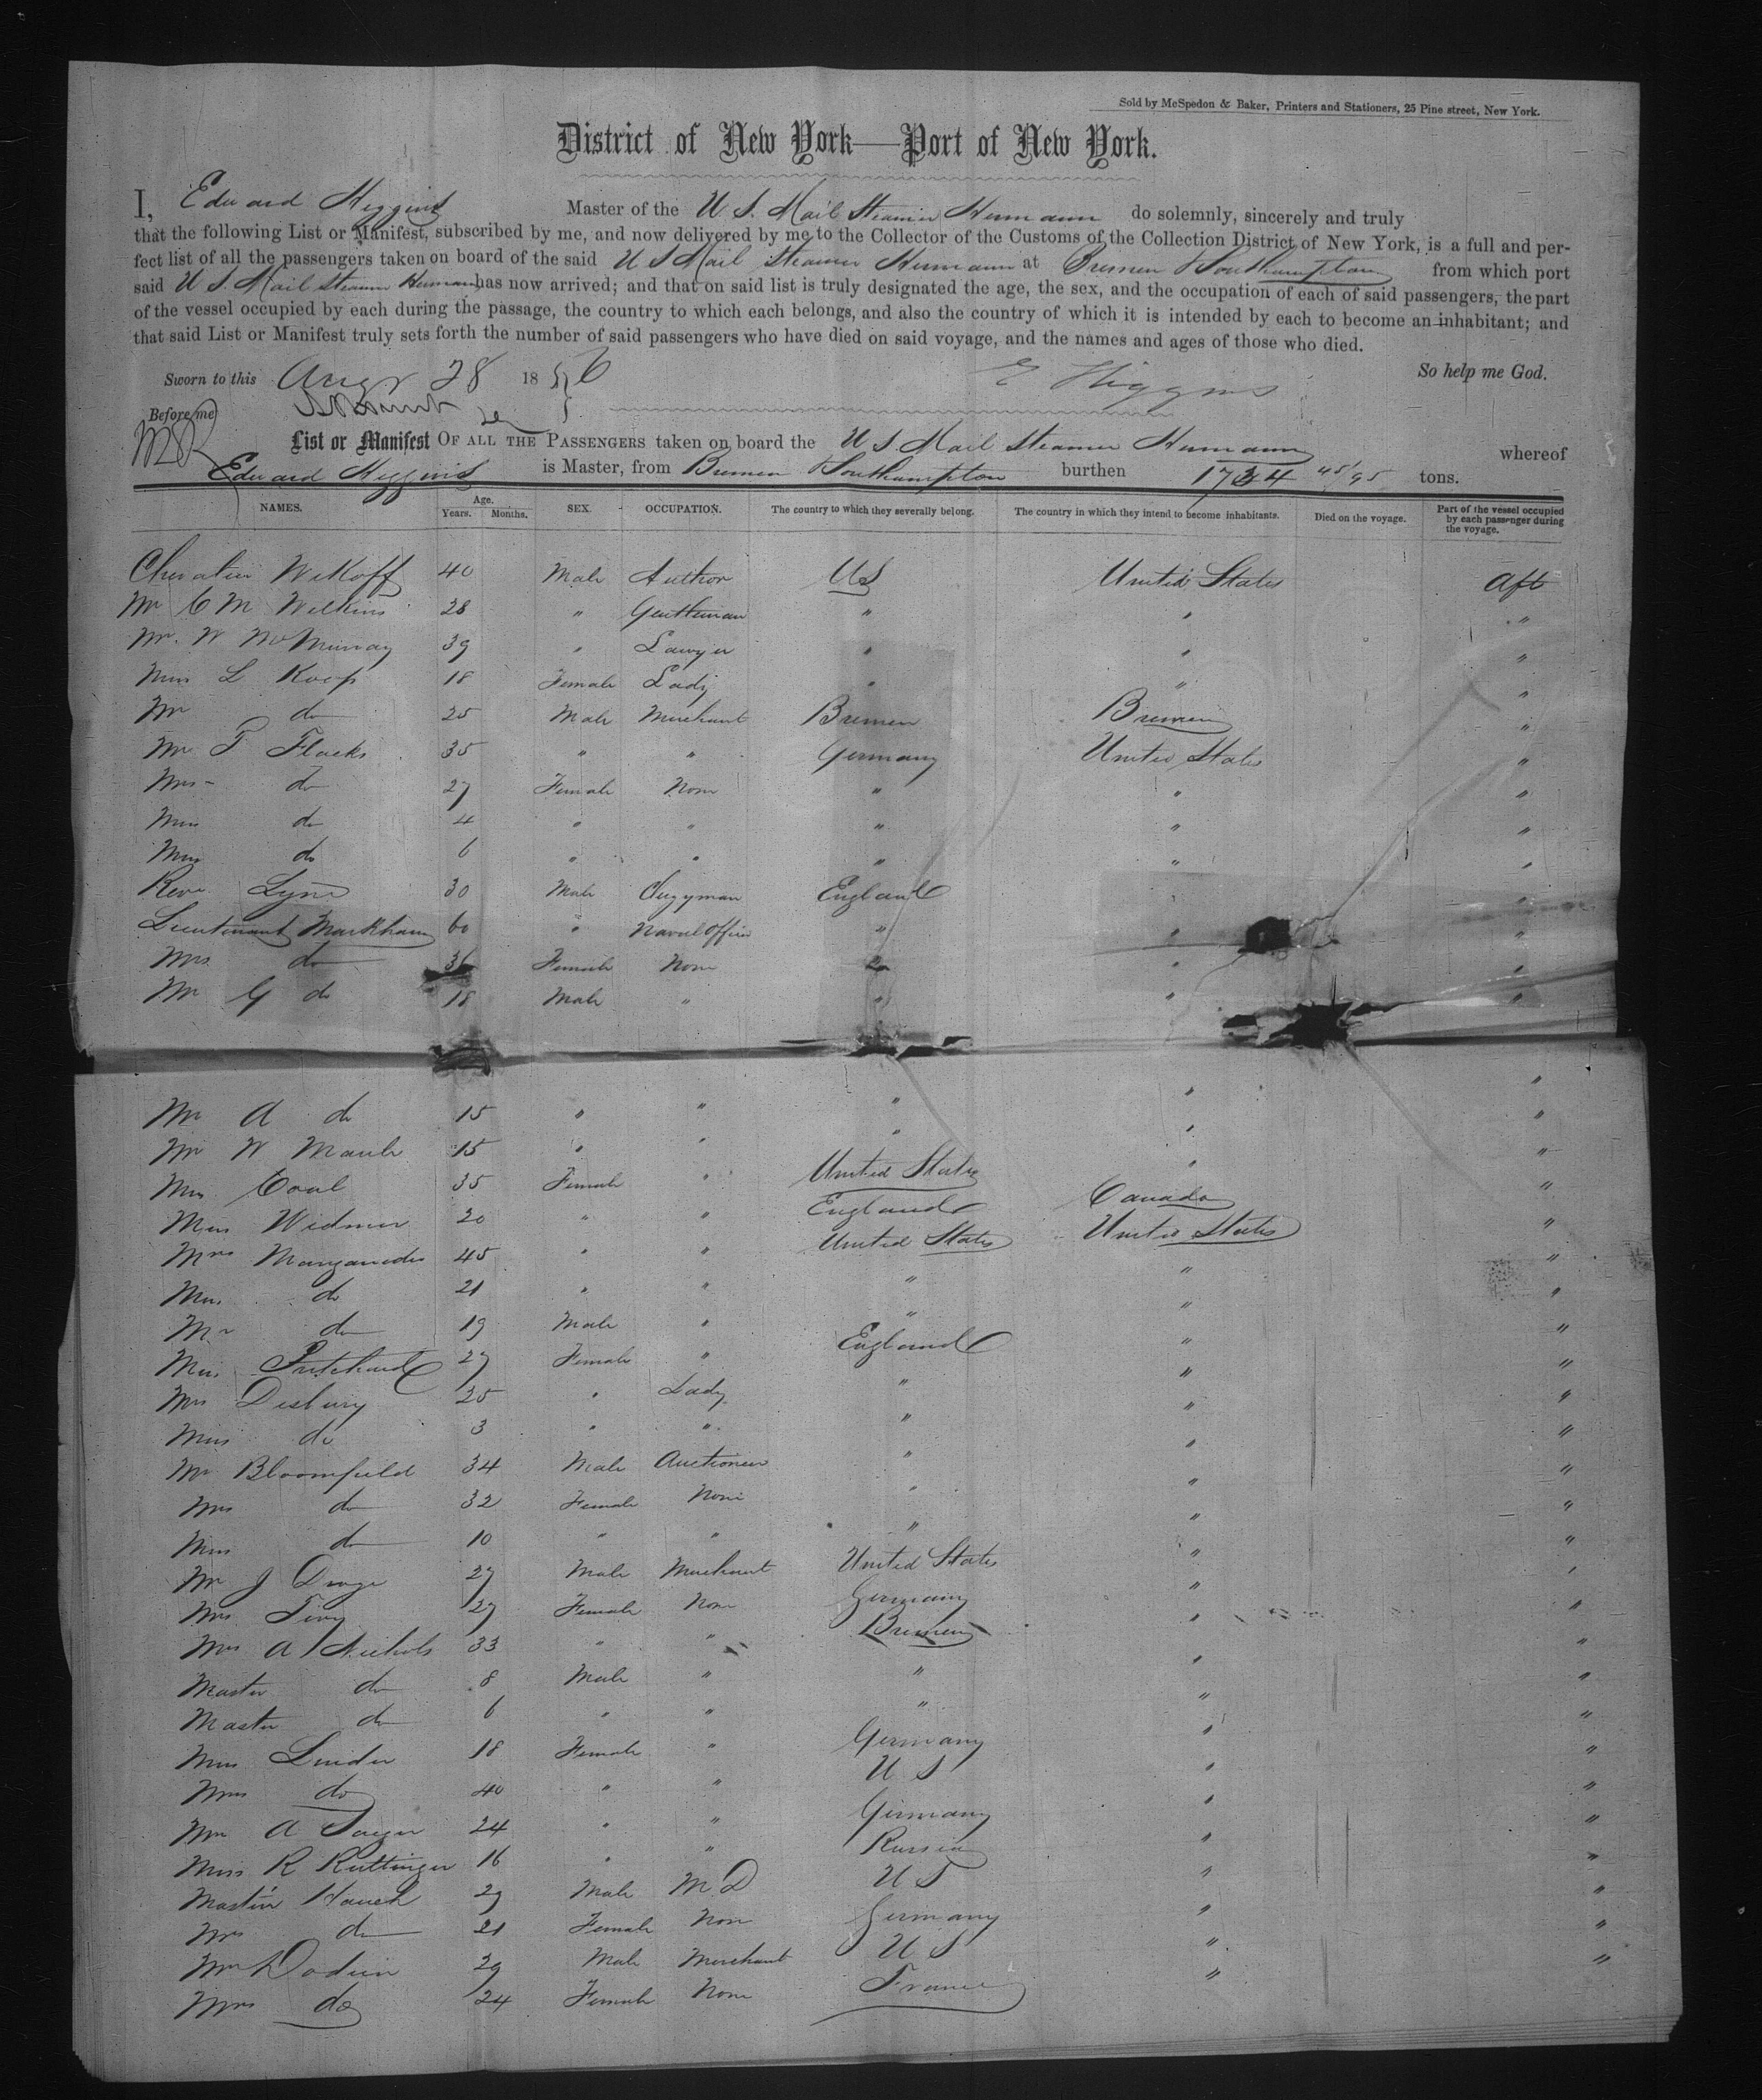 Sold by McSpedon & Baker, Printers and Stationers, 25 Pine street, New York.
District of New York—Port of New York.
I, Edward Higgins Master of the U S. Mail Steamer Hermann do solemnly, sincerely and truly
that the following List or Manifest, subscribed by me, and now delivered by me to the Collector of the Customs of the Collection District of New York, is a full and per-
fect list of all the passengers taken on board of the said U S Mail Steamer Hermann at Bremen & Southampton from which port
said U S. Mail Steamer Hermann has now arrived; and that on said list is truly designated the age, the sex, and the occupation of each of said passengers, the part
of the vessel occupied by each during the passage, the country to which each belongs, and also the country of which it is intended by each to become an inhabitant; and
that said List or Manifest truly sets forth the number of said passengers who have died on said voyage, and the names and ages of those who died.
Sworn to this Augt 28 1856 E Higgins So help me God.
Before me
List or Manifest OF ALL THE PASSENGERS taken on board the U S. Mail Steamer Hermann whereof
Edward Higgins is Master, from Bremen & Southampton burthen 1734 45/95 tons.
NAMES. Age. Years. Months. SEX. OCCUPATION. The country to which they severally belong. The country in which they intend to become inhabitants. Died on the voyage. Part of the vessel occupied by each passenger during the voyage.
Chevalier Wikoff 40 Male Author US United States Aft
Mr C M Wilkins 28 " Gentleman " " "
Mr. W McMurray 39 " Lawyer " " "
Miss L Koop 18 Female Lady " " "
Mr do 25 Male Merchant Bremen Bremen "
Mr T Flacks 35 " " Germany United States "
Mrs do 27 Female None " " "
Miss do 4 " " " " "
Miss do 6 " " " " "
Revd. Lyne 30 Male Clergyman England " "
Lieutenant Markham 60 " Naval Officer " " "
Mrs do 36 Female None " " "
Mr G do 18 Male " " " "
Mr A do 15 " " " " "
Mr W Maule 15 " " " " "
Mrs Coal 35 Female " United States " "
Miss Widmer 20 " " England Canada "
Mrs Manganedes 45 " " United States United States "
Miss do 21 " " " " "
Mr do 19 Male " " " "
Miss Pritchard 27 Female " England " "
Mrs Desbury 25 " Lady " " "
Miss do 3 " " " " "
Mr Bloomfield 34 Male Auctioneer " " "
Mrs do 32 Female None " " "
Miss do 10 " " " " "
Mr J Droge 27 Male Merchant United States " "
Mrs 27 Female None Germany " "
Mrs A Nichols 33 " " Bremen " "
Master do 8 Male " " " "
Master do 6 " " " " "
Miss Linder 18 Female " Germany " "
Mrs do 40 " " U S " "
A 24 " " Germany " "
Miss R Ruttinger 16 " " Russia " "
Martin Hauch 29 Male M D U S " "
Mrs do 21 Female None Germany " "
Mr Dodein 29 Male Merchant U S " "
Mrs do 24 Female None France "